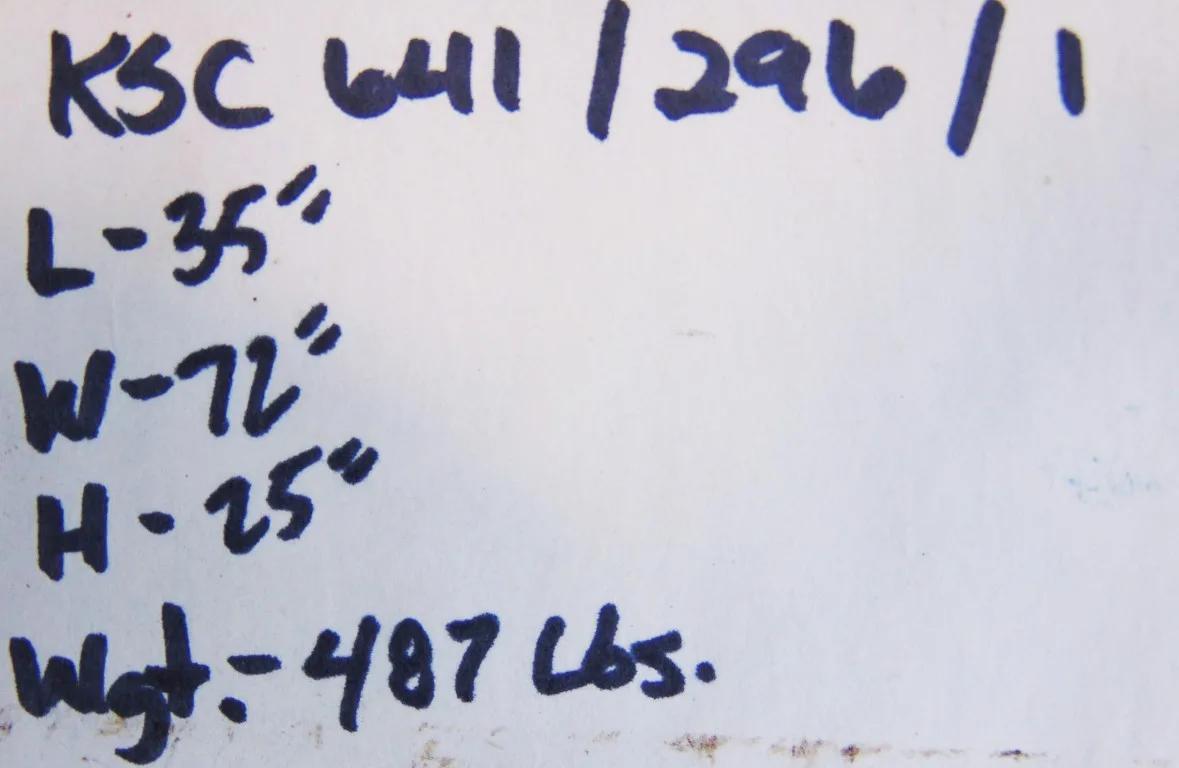 KSC 641 / 296 / 1
L - 35"
W - 72"
H - 25"
Wgt. - 487 Lbs.